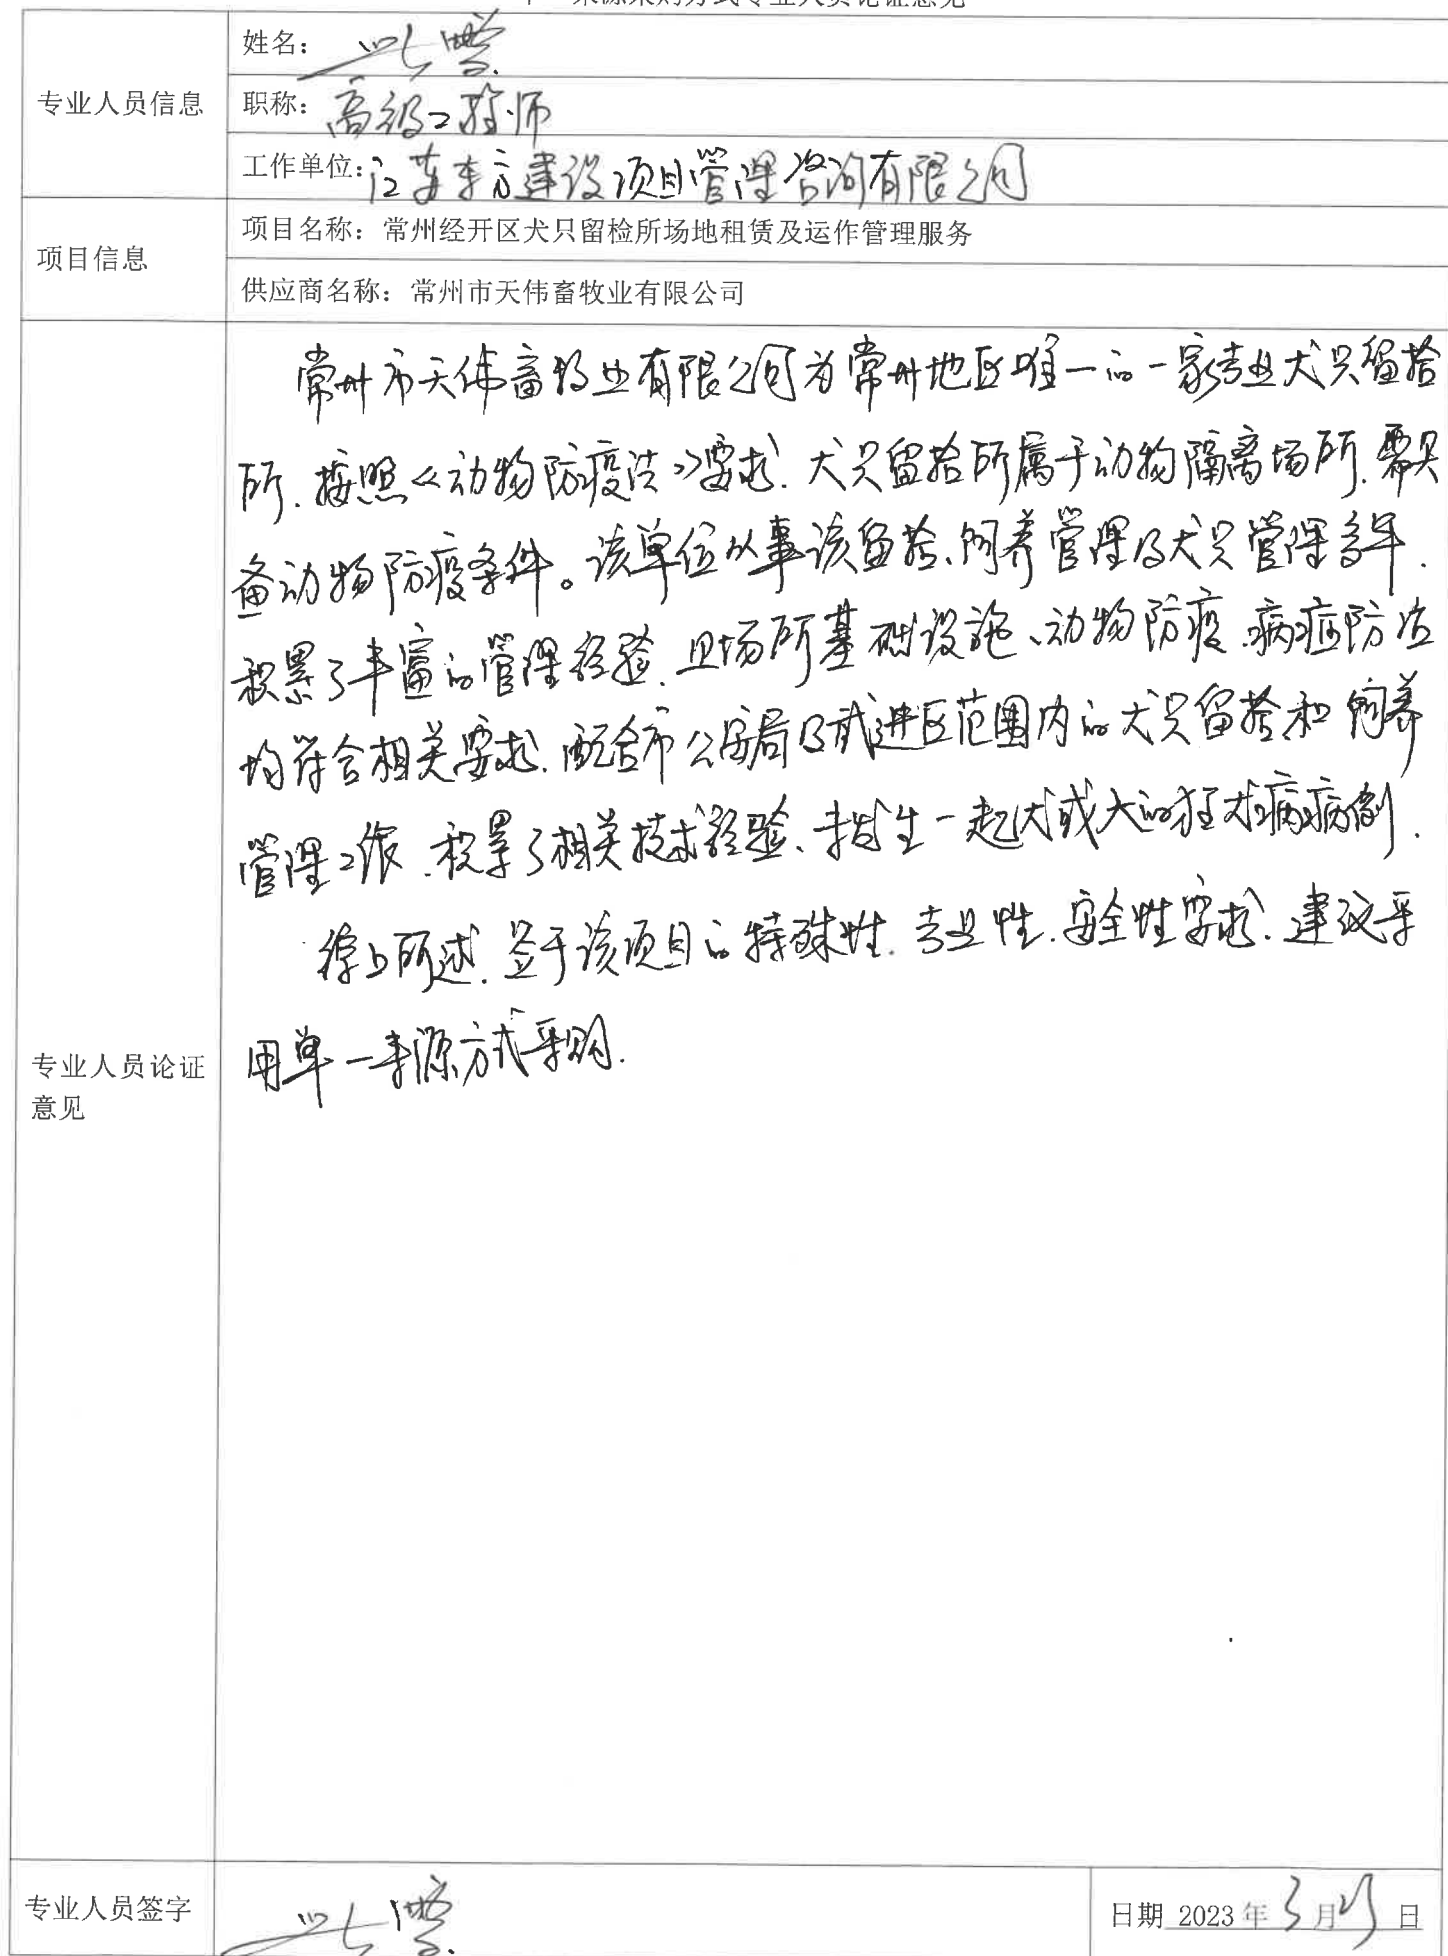 单一来源采购方式专业人员论证意见
专业人员信息
姓名：
职称：高级工程师
工作单位：江苏东方建设项目管理咨询有限公司
项目信息
项目名称：常州经开区犬只留检所场地租赁及运作管理服务
供应商名称：常州市天伟畜牧业有限公司
专业人员论证
意见
常州市天伟畜牧业有限公司为常州地区唯一的一家专业犬只留检
所．按照《动物防疫法》要求．犬只留检所属于动物隔离场所．需具
备动物防疫条件。该单位从事该留检、饲养管理及犬只管理多年．
积累了丰富的管理经验．且场所基础设施、动物防疫．病症防治
均符合相关要求．配合市公安局及武进区范围内的犬只留检和饲养
管理工作．积累了相关技术经验、生一起犬或人的狂犬病病例．
综上所述．鉴于该项目的特殊性．专业性．安全性要求．建议采
用单一来源方式采购．
专业人员签字
日期 2023 年 3 月 日